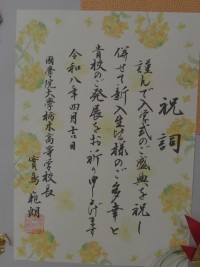 祝詞
謹んで入学式のご盛典を祝し
併せて新入生皆様のご多幸と
貴校のご発展をお祈り申し上げます
令和八年四月吉日
國學院大學栃木高等学校長